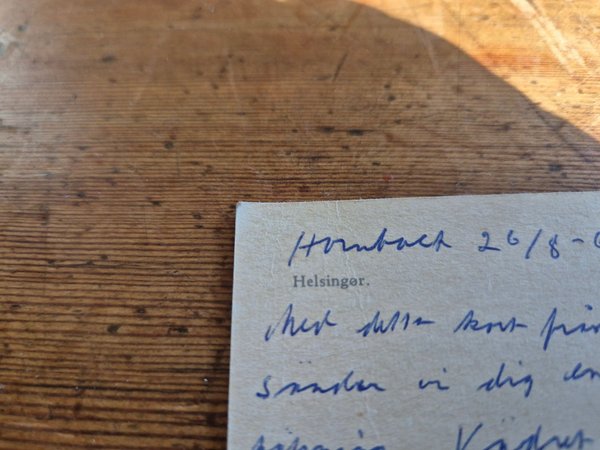 Hornbæk 26/8-6
Helsingør.
Med detta kort från
sänder vi dig en
Vädret